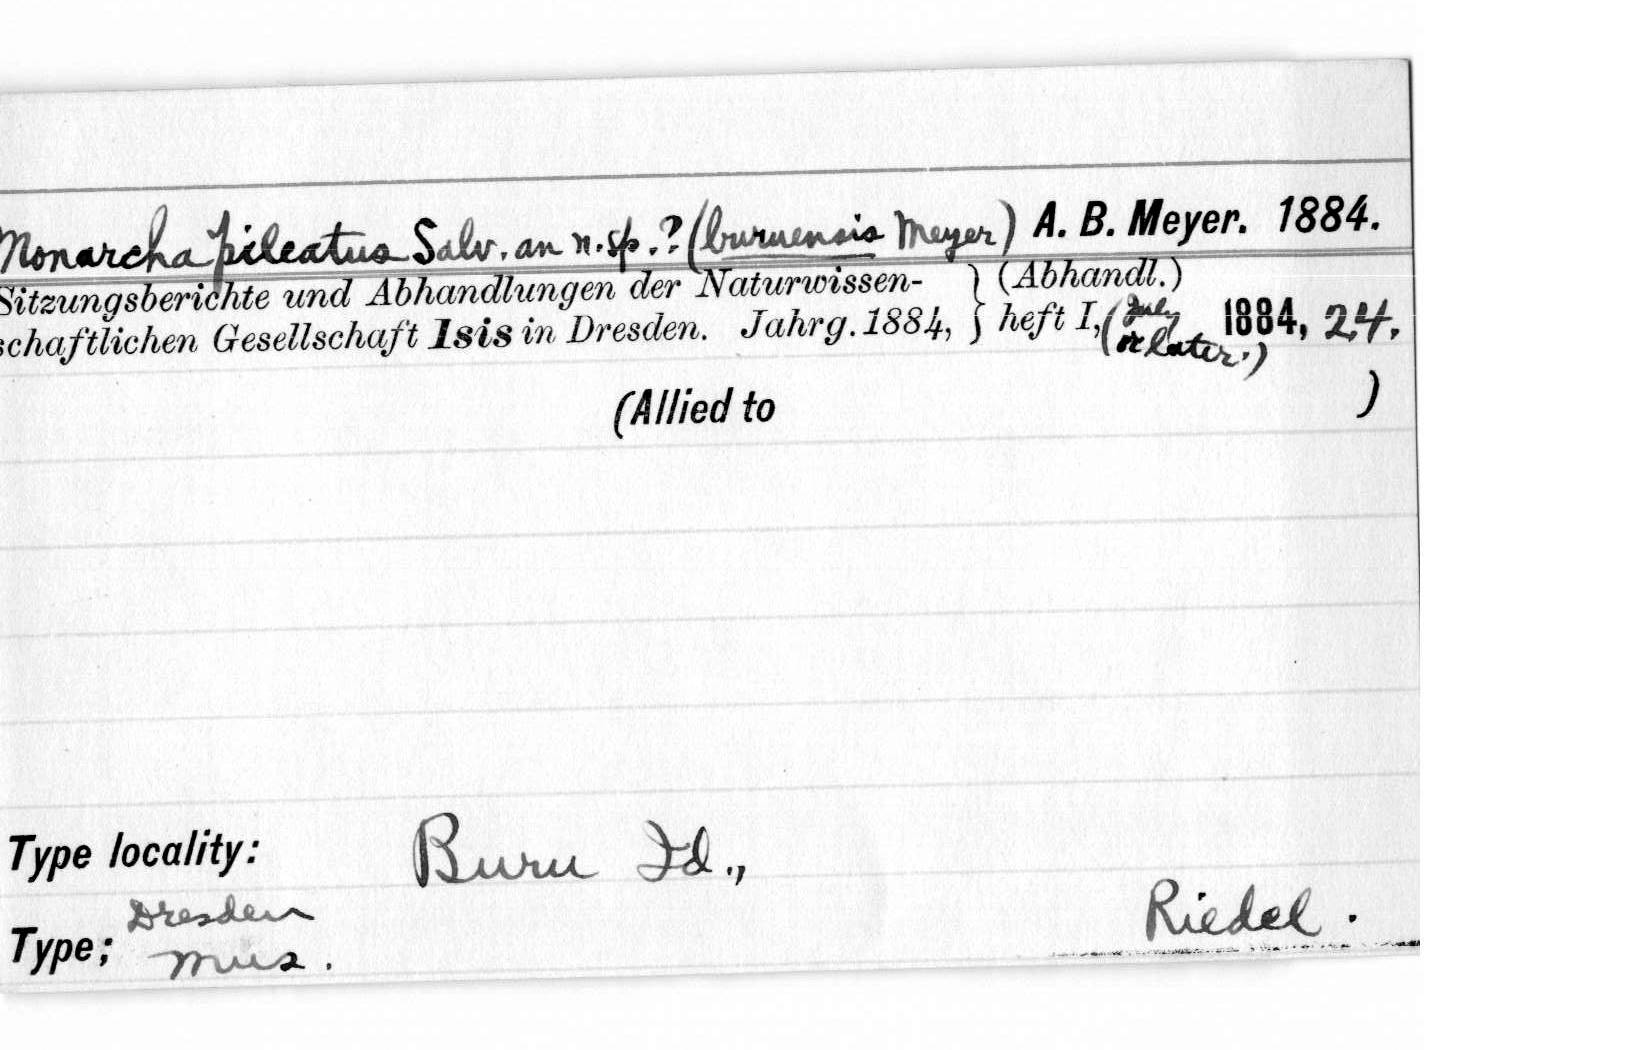 Monarcha pileatus Salv. an n. sp.? (buruensis Meyer) A. B. Meyer. 1884.
Sitzungsberichte und Abhandlungen der Naturwissen- } (Abhandl.)
schaftlichen Gesellschaft Isis in Dresden. Jahrg. 1884, } heft I, (July or later.) 1884, 24.
(Allied to )
Type locality: Buru Id.,
Riedel.
Type; Dresden
Mus.